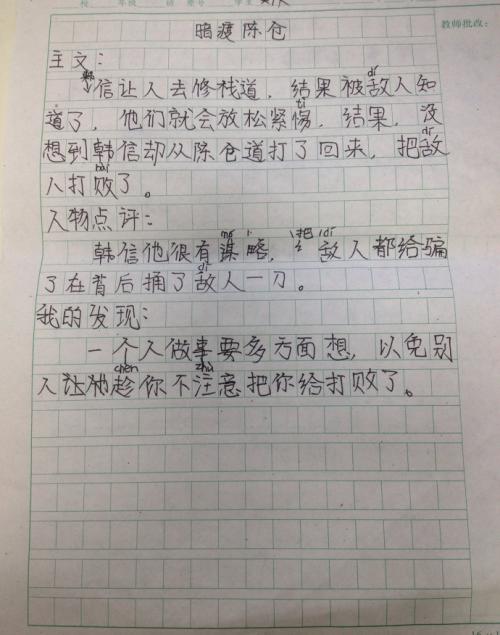 教师批改：
暗度陈仓
主文：
韩信让人去修栈道，结果被敌人知
道了，他们就会放松紧惕，结果，没
想到韩信却从陈仓道打了回来，把敌
人打败了。
人物点评：
韩信他很有谋略，把敌人都给骗
了在背后捅了敌人一刀。
我的发现：
一个人做事要多方面想，以免别
人让他趁你不注意把你给打败了。